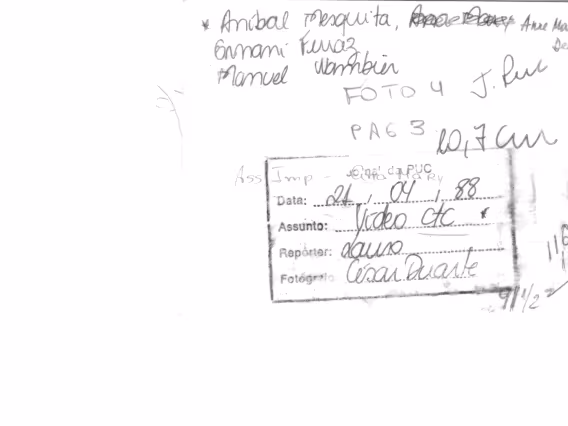 * Anibal Mesquita, Ane Ma
Ernani Ferraz
Manuel Wambier
FOTO 4 J. Puc
PAG 3 10,7 cm
Ass Imp - da PUC
Data: 21 / 04 / 88
Assunto: Video ctc
Repórter: Lauro
Fotógrafo César Duarte
9 1/2